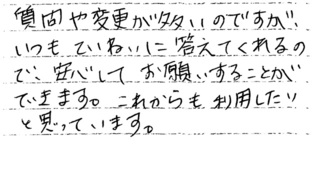 質問や変更が多いのですが、
いつもていねいに答えてくれるの
で、安心してお願いすることが
できます。これからも利用したい
と思っています。